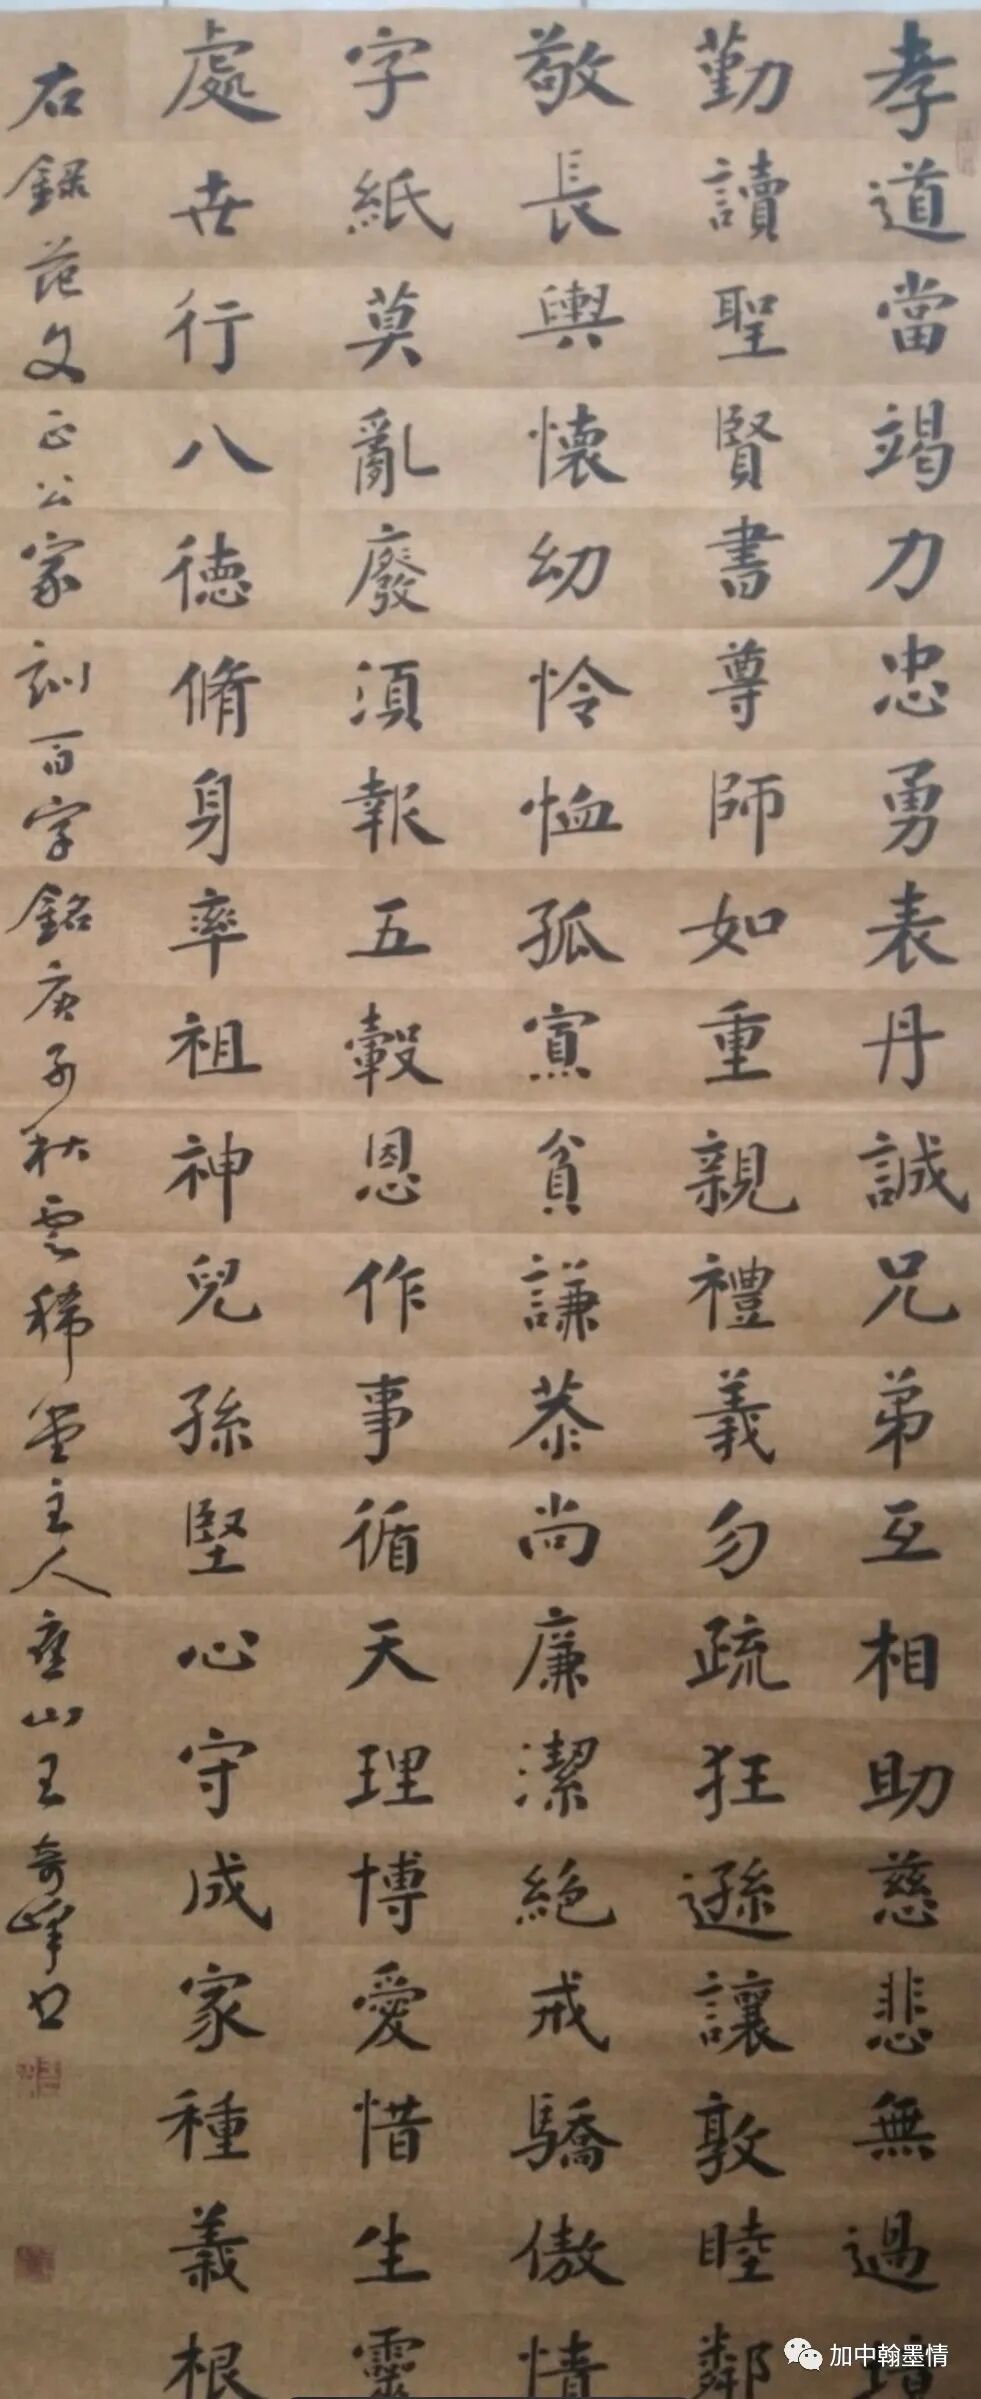 孝道當竭力忠勇表丹誠兄弟互相助慈悲無過境
勤讀聖賢書尊師如重親禮義勿疏狂遜讓敦睦鄰
敬長與懷幼怜恤孤寡貧謙恭尚廉潔絕戒驕傲情
字紙莫亂廢須報五穀恩作事循天理博愛惜生靈
處世行八德脩身率祖神兒孫堅心守成家種義根
右錄范文正公家訓百字銘庚子秋雲稀堂主人
山王奇峰書
加中翰墨情